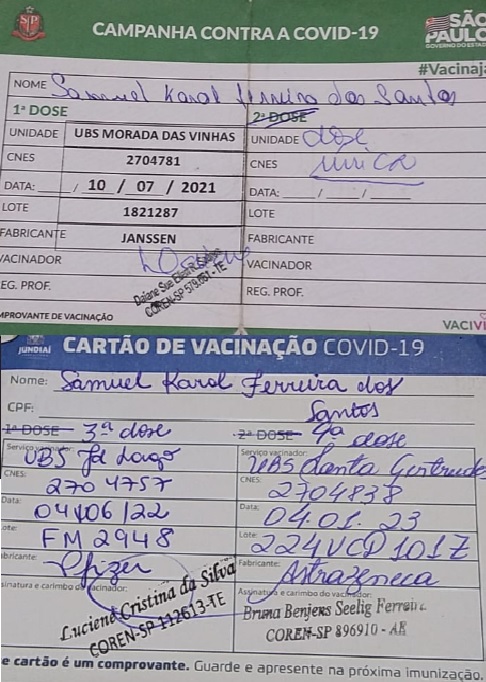 CAMPANHA CONTRA A COVID-19
SÃO PAULO
GOVERNO DO ESTADO
#Vacinaj
NOME Samuel Karol Ferreira dos Santos
1ª DOSE
2ª DOSE dose única
UNIDADE UBS MORADA DAS VINHAS
UNIDADE
CNES 2704781
CNES
DATA: 10 / 07 / 2021
DATA: / /
LOTE 1821287
LOTE
FABRICANTE JANSSEN
FABRICANTE
VACINADOR
VACINADOR
EG. PROF. COREN-SP 579.661-TE
REG. PROF.
MPROVANTE DE VACINAÇÃO
VACIV
JUNDIAÍ
CARTÃO DE VACINAÇÃO COVID-19
Nome: Samuel Karol Ferreira dos Santos
CPF:
1ª DOSE 3ª dose
2ª DOSE 4ª dose
Serviço vacinador: UBS
Serviço vacinador: UBS Santa Gertrudes
CNES: 2704757
CNES: 2704838
Data: 04/06/22
Data: 04.01.23
Lote: FM2948
Lote: 224VCD101Z
abricante: Pfizer
Fabricante: Astrazeneca
sinatura e carimbo do vacinador:
Luciene Cristina da Silva
COREN-SP 112613-TE
Assinatura e carimbo do vacinador:
Bruna Benjens Seelig Ferreira
COREN-SP 896910 - AE
e cartão é um comprovante. Guarde e apresente na próxima imunização.